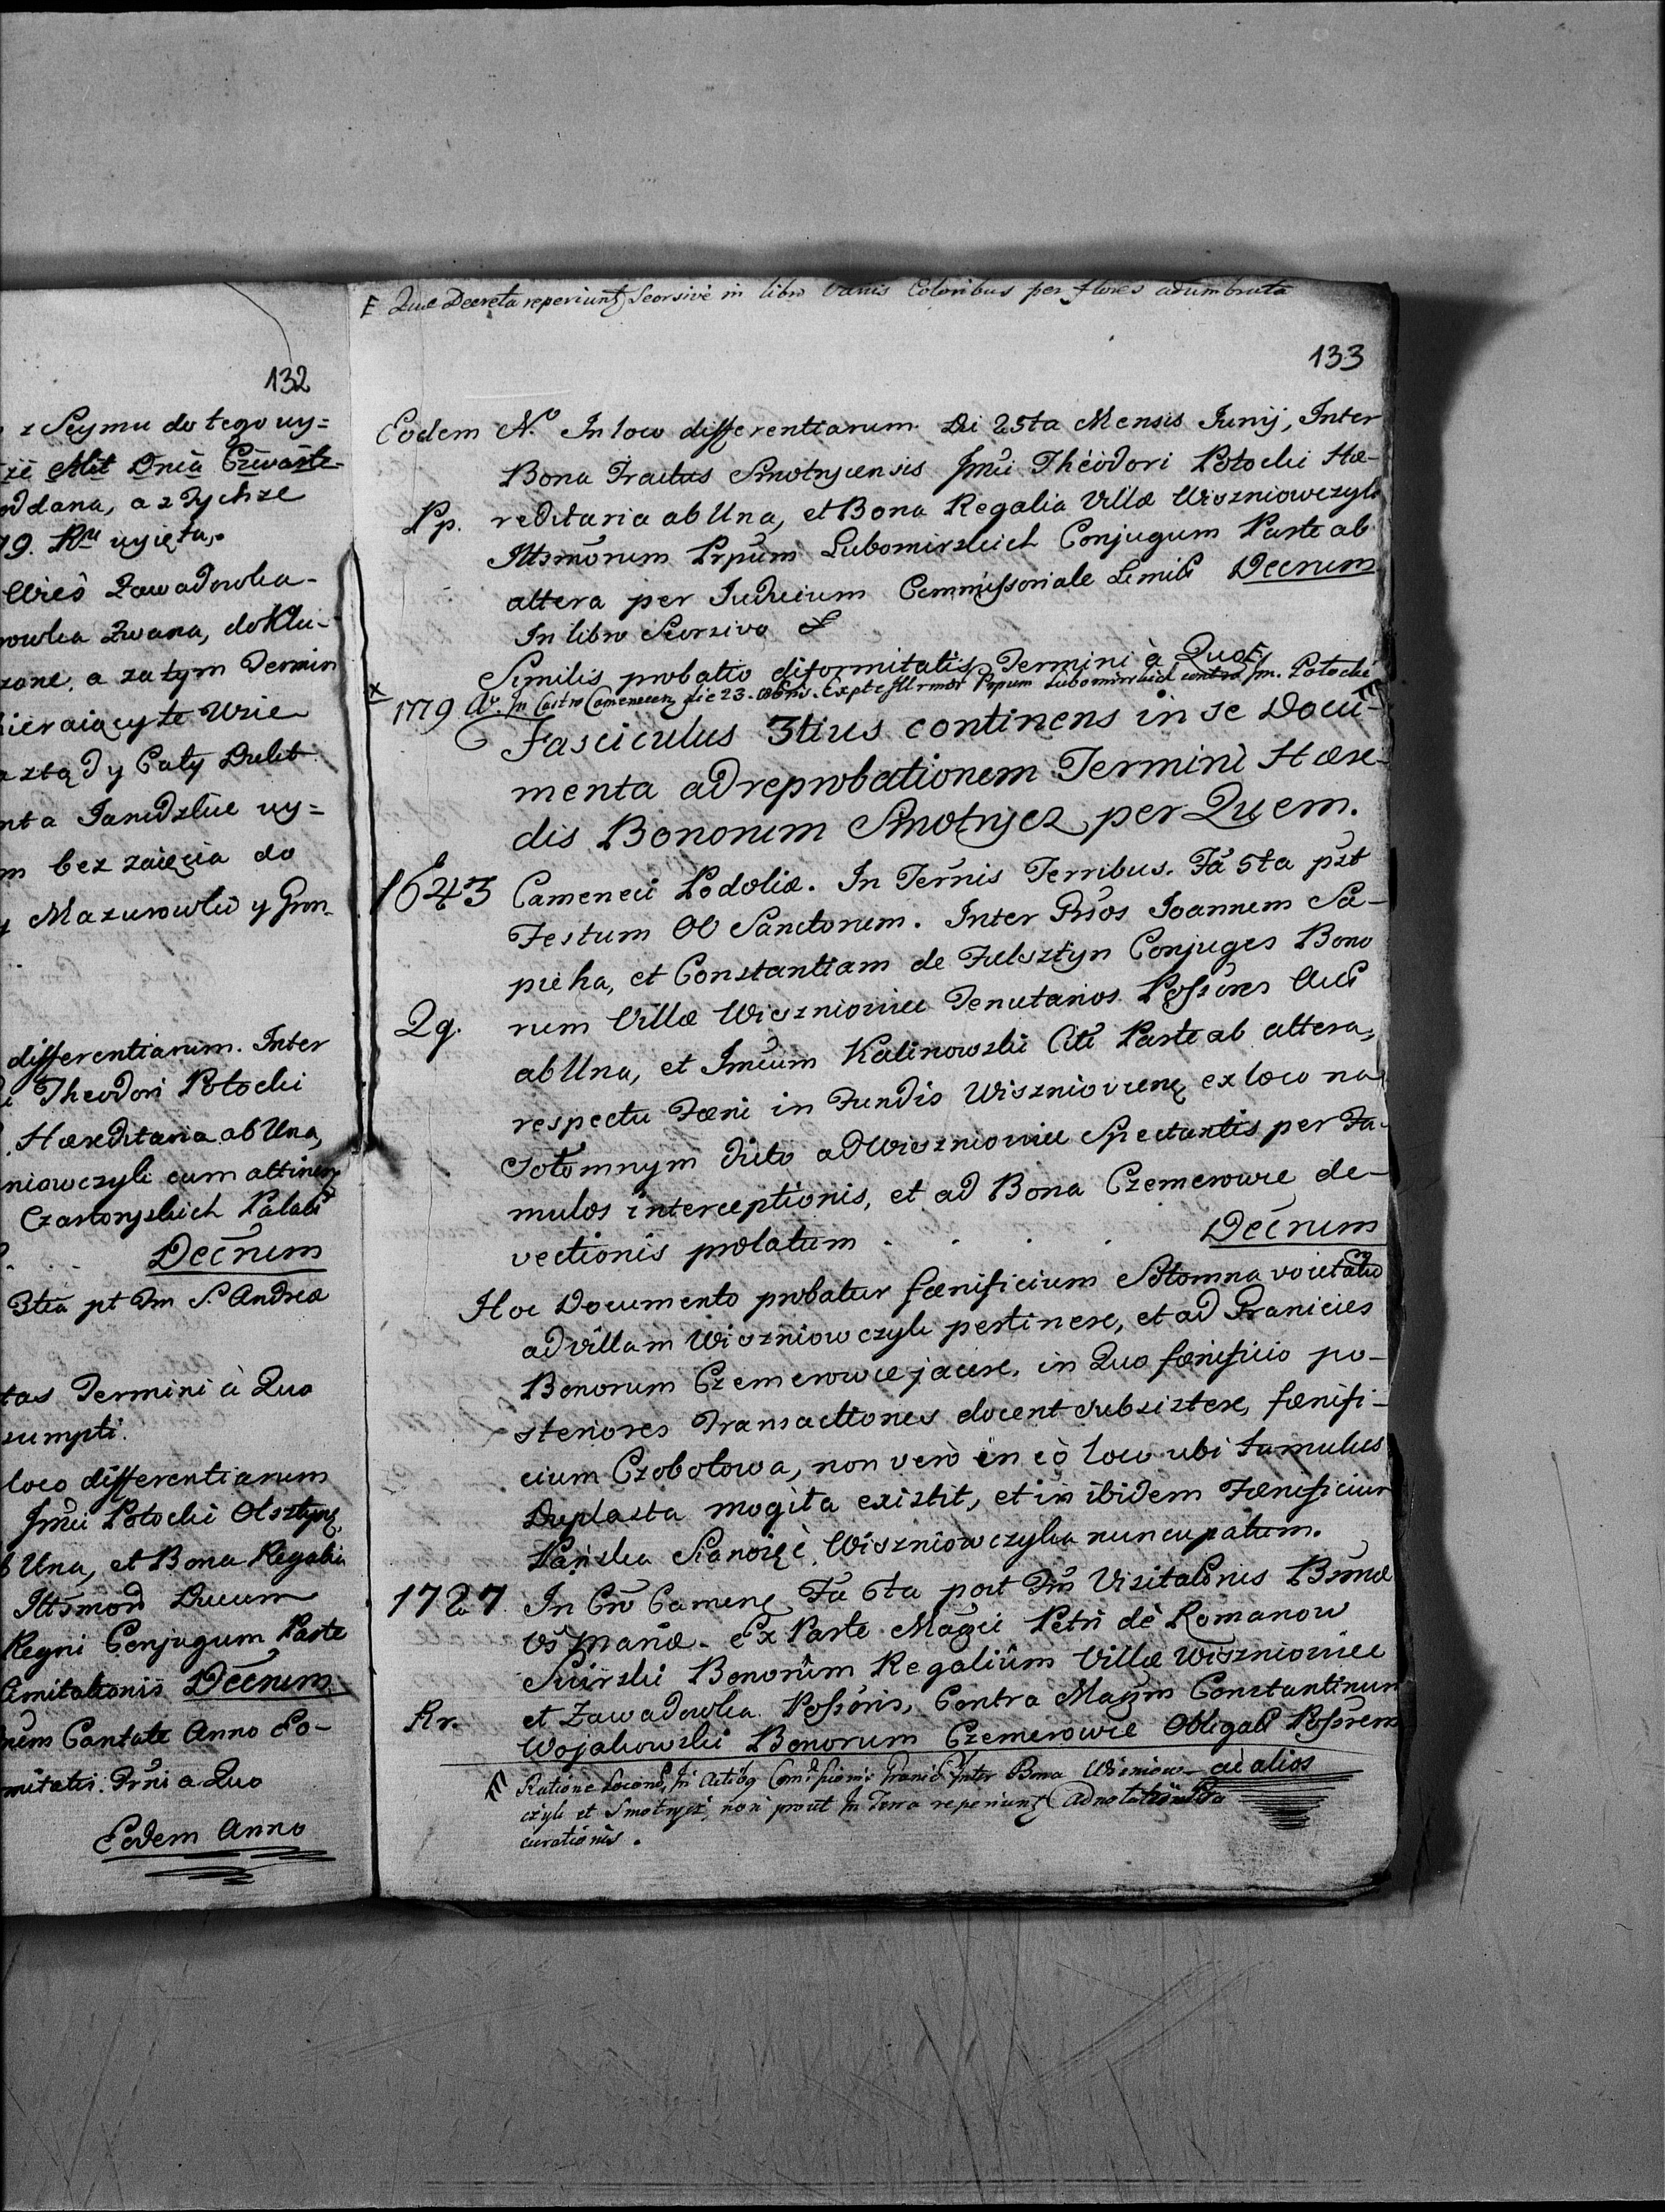 132
z Seymu do tego wy=
że Mit Dnia Czwarte-
oddana, a z Tychże
79. Ru wyięta.
Wieś Zawadowka-
rowka Zwana, do Klu-
zone, a za tym Termin
bieraiący te Wzie
a ztąd y Cały Dukt
nta Janidzkie wy=
m bez zaięcia do
y Mazurowki y Gron-
differentiarum. Inter
Theodori Potocki
Hæreditaria ab Una,
niowczyk cum attinen
Czartoryskich Palati
Decrum
3tia pt Dm S. Andreæ
tas Termini à Quo
sumpti.
loco differentiarum
Jmci Potocki Olsztyn
b Una, et Bona Regalia
Illsmor Ducum
Regni Conjugum Parte
Limitationis Decrum
nem Cantate Anno Eo-
mitatis Trni a Quo
Eodem Anno
E Quæ Decreta reperiunt Seorsivè in libro variis Coloribus per flores adumbrata
133
Eodem Nº In loco differentiarum Di 25ta Mensis Junij, Inter
Bona Tractus Smotrycensis Jmci Théodori Potocki Hæ-
Pp. reditaria ab Una, et Bona Regalia Villæ Wiszniowczyk
Illsmorum Prpum Lubomirskich Conjugum Parte ab
altera per Judicium Commissoriale Limit Decrum
In libro Seorsivo
Similis probatio diformitatis Termini à Quo.
1779 Aº. In Castro Camenecen die 23. Expte Illrmor Prpum Lubomirskich contra Jm. Potocki
Fasciculus 3tius continens in se Docu-
menta ad reprobationem Termini Hære-
dis Bonorum Smotrycz per Quem.
1643 Camenecii Podoliæ. In Ternis Terribus. Fa 5ta pst
Festum OO Sanctorum. Inter Gsos Joannem Sa-
pieha, et Constantiam de Fulsztyn Conjuges Bono
Qq. rum Villæ Wiszniowice Tenutarios Possores Act
ab Una, et Jmcum Kalinowski Citt Parte ab altera,
respectu Fœni in Fundis Wisznioviens ex loco na
Sołomnym dicto ad Wiszniowice Spectantis per Fa-
mulos interceptionis, et ad Bona Czemerowce de-
vectionis prolatum . . . . Decrum
Hoc Documento probatur fœnificium Sołomna vocitatum
ad villam Wiszniowczyk pertinere, et ad Granicies
Bonorum Czemerowce jacere, in Quo fœnificio po-
steriores Transactiones docent subsistere, fœnifi-
cium Czobotowa, non verò in eò loco ubi tumulus
Duplasta mogiła existit, et in ibidem Fœnificium
Pańska Sianożęć Wiszniowczyka nuncupatum.
1727 In Crō Camenę Fa 6ta post Fm Visitationis Bsmæ
Vs Mariæ. Ex Parte Magci Petri dè Romanow
Swirski Bonorum Regalium Villæ Wiszniowice
Rr. et Zawadowka Possoris, Contra Magm Constantinum
Wojakowski Bonorum Czemerowce Obligat Possorem
ac alios
Ratione locand In Actiõg Comisionis Granic Inter Bona Wiszniow-
czyk et Smotrycz, non prout In Terra reperiunt Adnotation Pro
curationis.